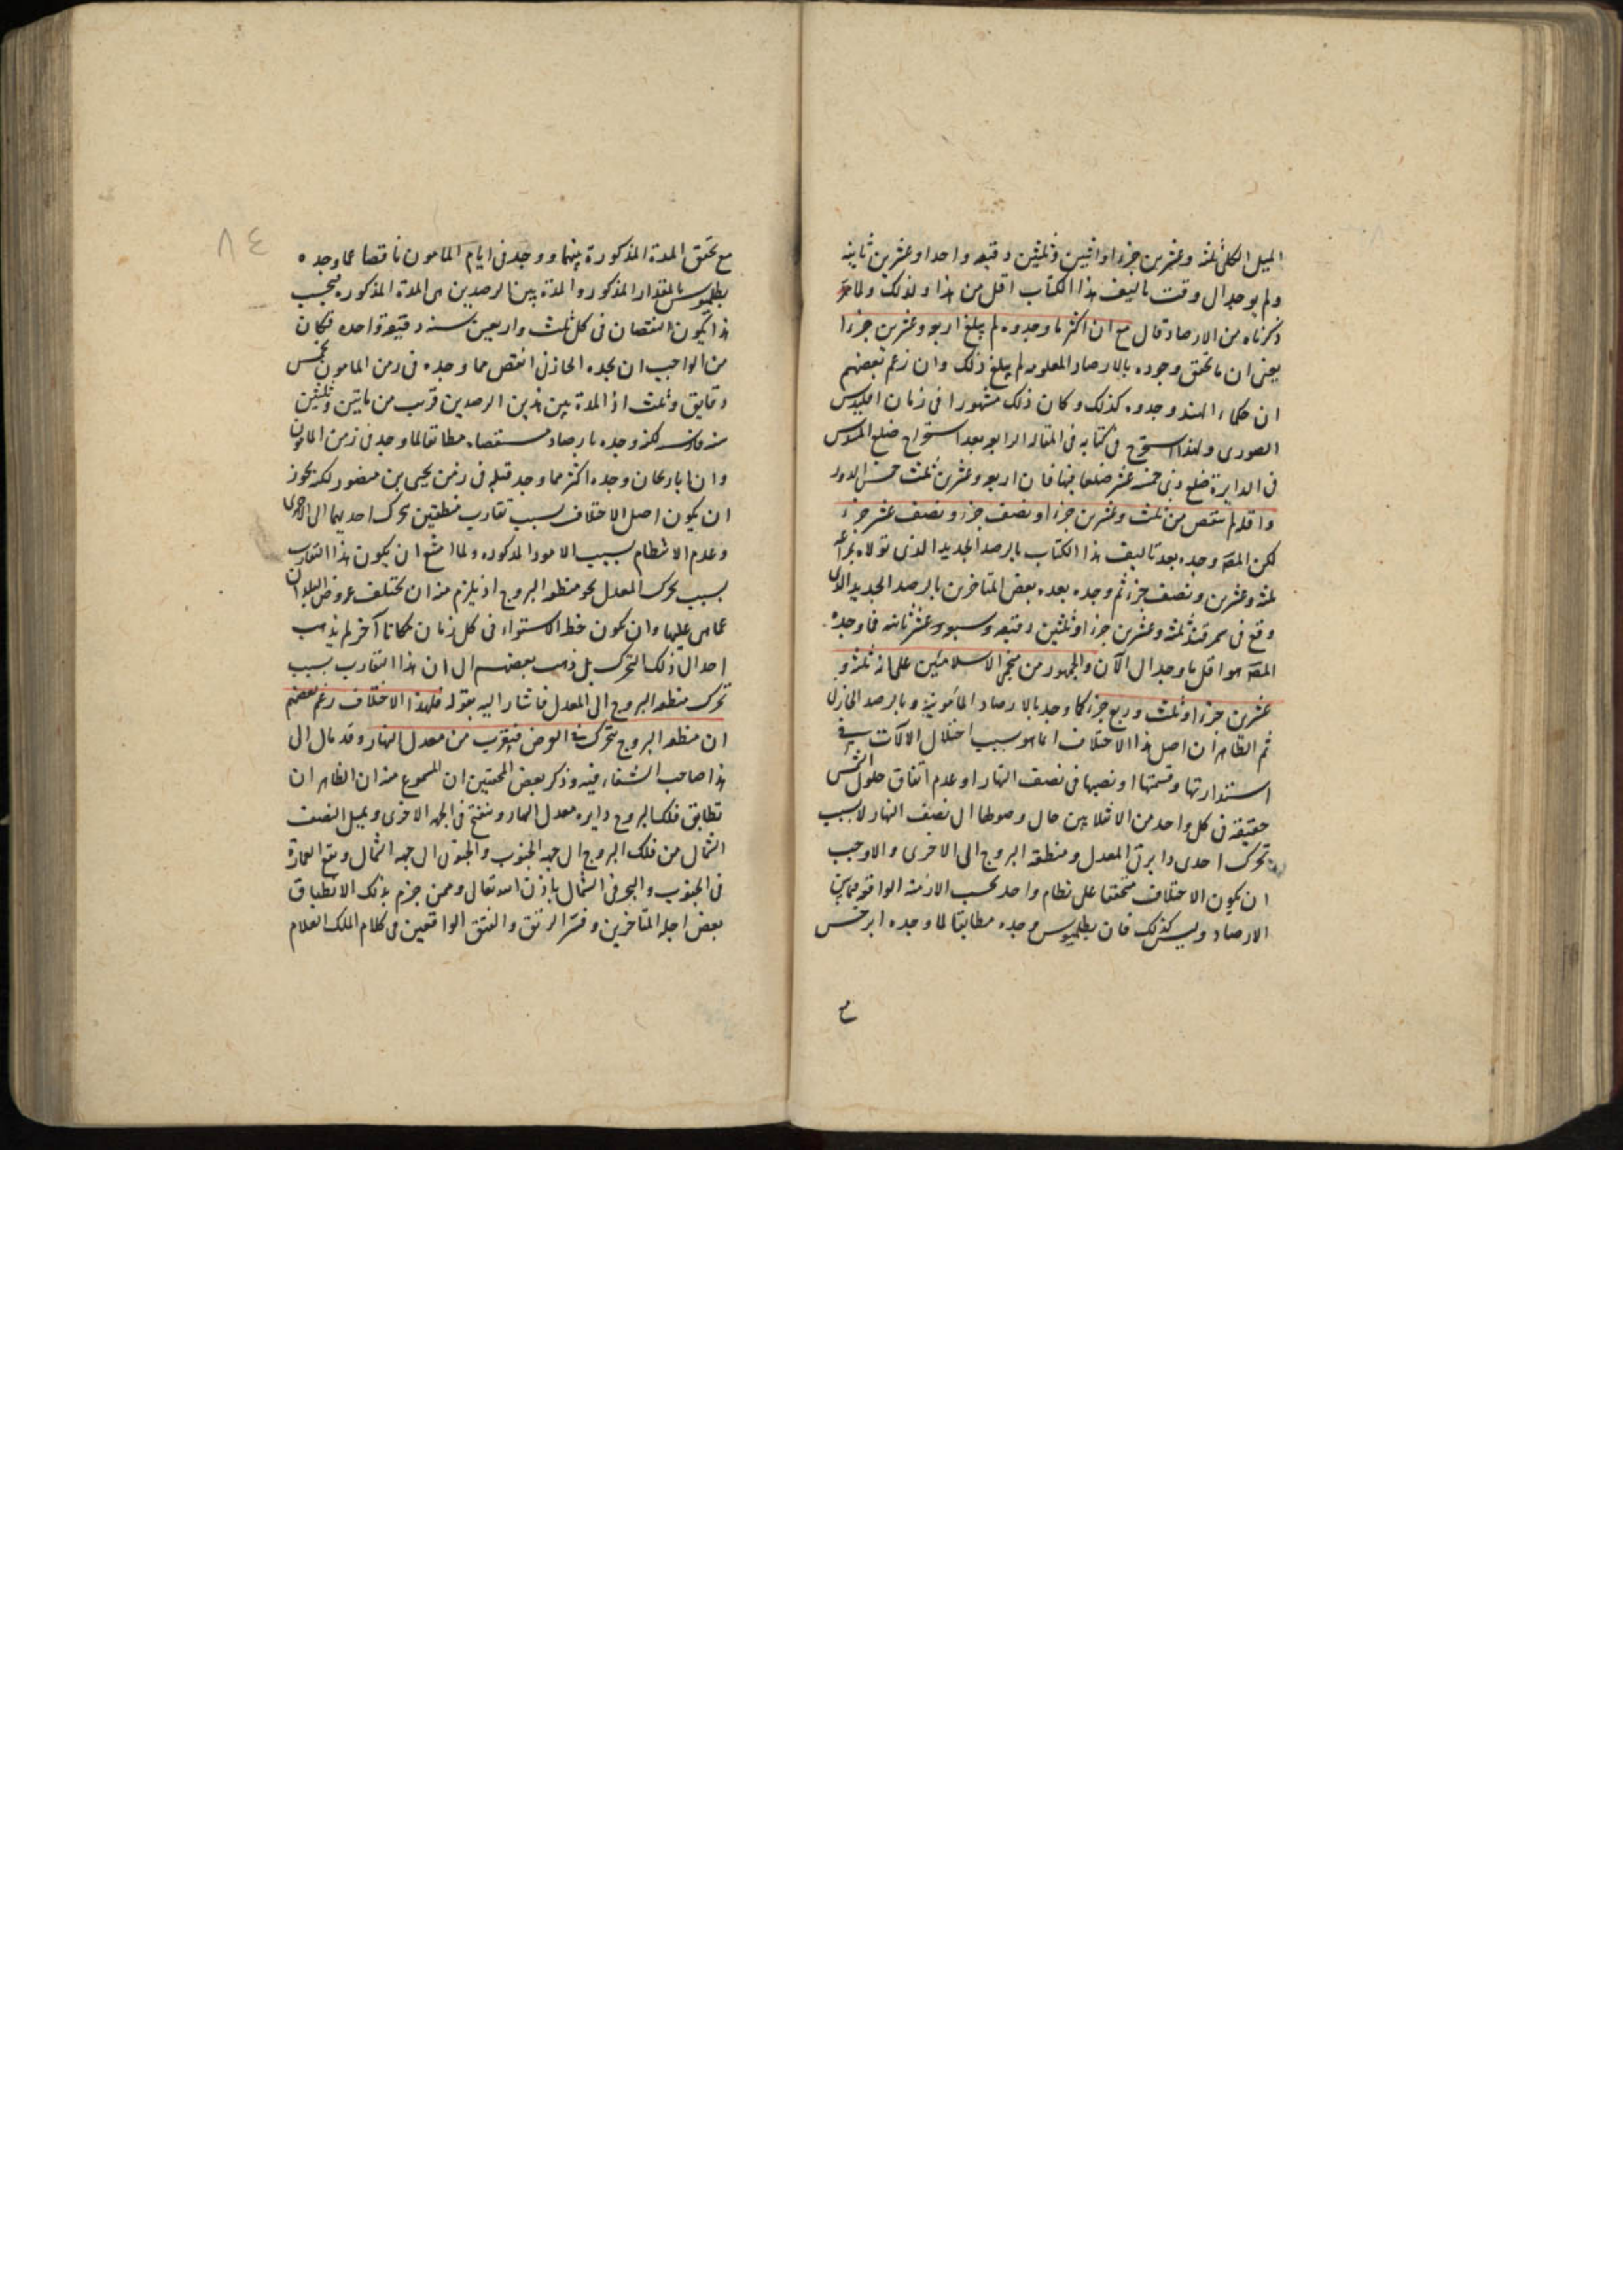 الميل الكلى ثلثه وعشرين جزءا واثنين وثلثين دقيقه واحدا وعشرين ثانيه
ولم يوجد الى وقت تاليف هذا الكتاب اقل من هذا ولذلك ولما
ذكرناه من الارصاد قال مع ان اكثر ما وجدوه لم يبلغ اربعه وعشرين جزءا
يعنى ان ما تحقق وجوده بالارصاد المعلومه لم يبلغ ذلك وان زعم بعضهم
ان حكماء الهند وجدوه كذلك وكان ذلك مشهورا فى زمان اقليدس
الصورى ولهذا استخرج فى كتابه فى المقاله الرابعه بعد استخراج ضلع المسدس
فى الدايرة ضلع ذى خمسه عشر ضلعا فيها فان اربعه وعشرين ثلث خمس الدور
واقله لم ينقص من ثلث وعشرين جزءا ونصف جزء ونصف عشر جزء
لكن المصَ وجده بعد تاليف هذا الكتاب بالرصد الجديد الذى تولاه بمراغه
ثلثه وعشرين ونصف جزء ثم وجده بعده بعض المتاخرين بالرصد الجديد الذى
وقع فى سمرقند ثلثه وعشرين جزءا وثلثين دقيقه وسبعه عشر ثانيه فما وجده
المصَ هو اقل ما وجد الى الآن والجمهور من منجمى الاسلاميين على انه ثلثه و
عشرين جزءا وثلث وربع جزء كما وجد بالارصاد المأمونية وبالرصد الخازنى
ثم الظاهر ان اصل هذا الاختلاف انما هو بسبب اختلال الآلات فى
استدارتها وقسمتها او نصبها فى نصف النهار او عدم اتفاق حلول الشمس
حقيقة فى كل واحد من الانقلابين حال وصولها الى نصف النهار لا بسبب
تحرك احدى دايرتى المعدل ومنطقه البروج الى الاخرى والا وجب
ان يكون الاختلاف متحققا على نظام واحد بحسب الازمنه الواقعه فيما بين
الارصاد وليس كذلك فان بطلميوس وجده مطابقا لما وجده ابرخس
مع
٨٤
مع تحقق المدة المذكورة بينهما ووجد فى ايام المامون ناقصا عما وجده
بطلميوس بالمقدار المذكور والمدة بين الرصدين هى المدة المذكوره فبحسب
هذا يكون النقصان فى كل ثلث واربعين سنه دقيقة واحده فكان
من الواجب ان يجده الخازنى انقص مما وجده فى زمن المامون بخمس
دقايق وثلث اذ المدة بين هذين الرصدين قريب من مايتين وثلثين
سنه فارسيه لكنه وجده بارصاد مستقصاه مطابقا لما وجد فى زمن المامون
وان ابا ريحان وجده اكثر مما وجد قبله فى زمن يحيى بن منصور لكنه يجوز
ان يكون اصل الاختلاف بسبب تقارب منطقتين بتحرك احديهما الى الاخرى
وعدم الانتظام بسبب الامور المذكوره ولما امتنع ان يكون هذا التقارب
بسبب تحرك المعدل نحو منطقه البروج اذ يلزم منه ان تختلف عروض البلدان
عما هى عليها وان يكون خط الاستواء فى كل زمان مكانا آخر لم يذهب
احد الى ذلك التحرك بل ذهب بعضهم الى ان هذا التقارب بسبب
تحرك منطقه البروج الى المعدل فاشار اليه بقوله فلهذا الاختلاف زعم بعضهم
ان منطقه البروج تتحرك فى العرض فيقرب من معدل النهار وقد مال الى
هذا صاحب الشفاء فيه وذكر بعض المحققين ان المسموع منه ان الظاهر ان
تطابق فلك البروج دايره معدل النهار وتنفتح فى الجهه الاخرى ويميل النصف
الشمالى من فلك البروج الى جهه الجنوب والجنوبى الى جهه الشمال وتقع العمارة
فى الجنوب والبحر فى الشمال باذن الله تعالى وممن جزم بذلك الانطباق
بعض اجله المتاخرين وفسر الرتق والفتق الواقعين فى كلام الملك العلام